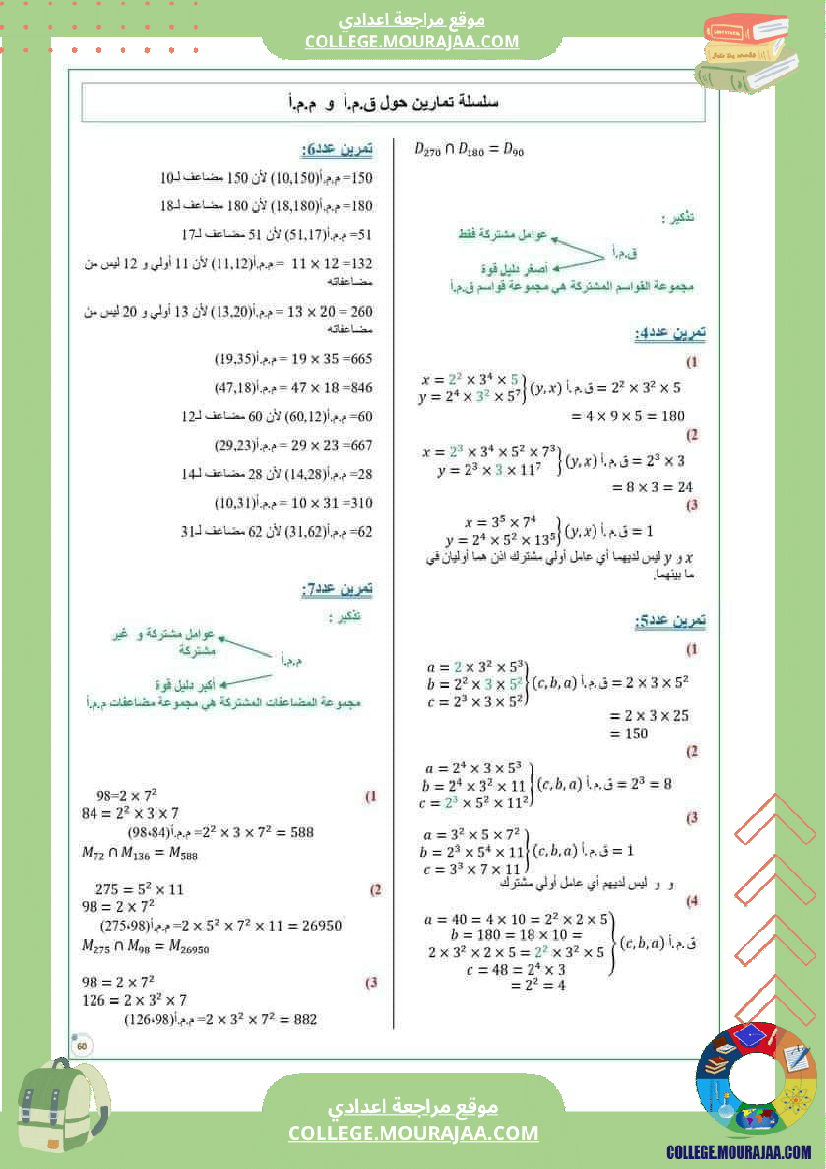 موقع مراجعة اعدادي
COLLEGE.MOURAJAA.COM
سلسلة تمارين حول ق.م.أ و م.م.أ
D₂₇₀ ∩ D₁₈₀ = D₉₀
تذكير :
عوامل مشتركة فقط
ق.م.أ
أصغر دليل قوة
مجموعة القواسم المشتركة هي مجموعة قواسم ق.م.أ
تمرين عدد4:
(1
x = 2² × 3⁴ × 5
y = 2⁴ × 3² × 5⁷} (y, x) ق.م.أ = 2² × 3² × 5
= 4 × 9 × 5 = 180
(2
x = 2³ × 3⁴ × 5² × 7³
y = 2³ × 3 × 11⁷} (y, x) ق.م.أ = 2³ × 3
= 8 × 3 = 24
(3
x = 3⁵ × 7⁴
y = 2⁴ × 5² × 13⁵} (y, x) ق.م.أ = 1
x و y ليس لديهما أي عامل أولي مشترك اذن هما أوليان في
ما بينهما.
تمرين عدد5:
(1
a = 2 × 3² × 5³
b = 2² × 3 × 5²} (c, b, a) ق.م.أ = 2 × 3 × 5²
c = 2³ × 3 × 5²
= 2 × 3 × 25
= 150
(2
a = 2⁴ × 3 × 5³
b = 2⁴ × 3² × 11} (c, b, a) ق.م.أ = 2³ = 8
c = 2³ × 5² × 11²
(3
a = 3² × 5 × 7²
b = 2³ × 5⁴ × 11} (c, b, a) ق.م.أ = 1
c = 3³ × 7 × 11
و و ليس لديهم أي عامل أولي مشترك
(4
a = 40 = 4 × 10 = 2² × 2 × 5
b = 180 = 18 × 10 =
2 × 3² × 2 × 5 = 2² × 3² × 5} (c, b, a) ق.م.أ
c = 48 = 2⁴ × 3
= 2² = 4
تمرين عدد6:
150= م.م.أ(10,150) لأن 150 مضاعف لـ10
180= م.م.أ(18,180) لأن 180 مضاعف لـ18
51= م.م.أ(51,17) لأن 51 مضاعف لـ17
132= 12 × 11 = م.م.أ(11,12) لأن 11 أولي و 12 ليس من
مضاعفاته
260 = 20 × 13 = م.م.أ(13,20) لأن 13 أولي و 20 ليس من
مضاعفاته
665= 35 × 19 = م.م.أ(19,35)
846= 18 × 47 = م.م.أ(47,18)
60= م.م.أ(60,12) لأن 60 مضاعف لـ12
667= 23 × 29 = م.م.أ(29,23)
28= م.م.أ(14,28) لأن 28 مضاعف لـ14
310= 31 × 10 = م.م.أ(10,31)
62= م.م.أ(31,62) لأن 62 مضاعف لـ31
تمرين عدد7:
تذكير :
عوامل مشتركة و غير
مشتركة
م.م.أ
أكبر دليل قوة
مجموعة المضاعفات المشتركة هي مجموعة مضاعفات م.م.أ
(1 98=2 × 7²
84 = 2² × 3 × 7
(98،84)م.م.أ =2² × 3 × 7² = 588
M₇₂ ∩ M₁₃₆ = M₅₈₈
(2 275 = 5² × 11
98 = 2 × 7²
(275،98)م.م.أ =2 × 5² × 7² × 11 = 26950
M₂₇₅ ∩ M₉₈ = M₂₆₉₅₀
(3 98 = 2 × 7²
126 = 2 × 3² × 7
(126،98)م.م.أ =2 × 3² × 7² = 882
60
موقع مراجعة اعدادي
COLLEGE.MOURAJAA.COM
COLLEGE.MOURAJAA.COM